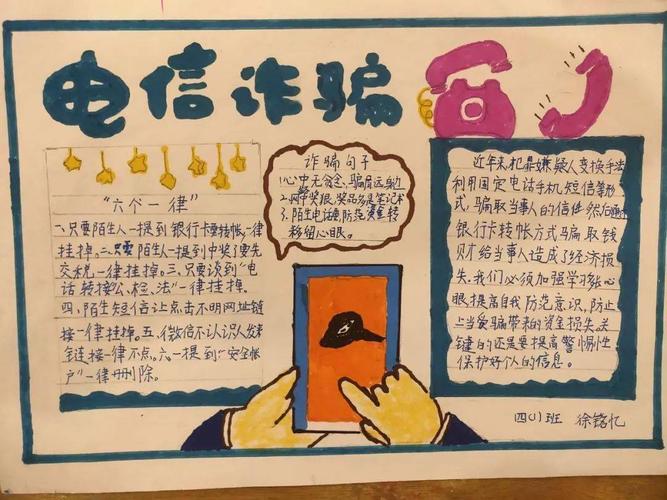 电信诈骗
“六个一律”
一、只要陌生人一提到银行卡要转帐,一律
挂掉。二、只要陌生人一提到中奖了要先
交税一律挂掉。三、只要谈到“电
话转接公、检、法”一律挂掉。
四、陌生短信让点击不明网址链
接一律挂掉。五、微信不认识人发来
链接一律不点。六、一提到“安全帐
户”一律删除。
诈骗句子
1.心中无贪念,骗局远离
2.网中奖
3.陌生电话要防范资金转
移留心眼。
近年来犯罪嫌疑人变换手法
利用固定电话手机短信等形
式,骗取当事人的信任然后通过
银行卡转帐方式骗取钱
财给当事人造成了经济损
失。我们必须加强学习长心
眼提高自我防范意识,防止
上当受骗带来的资金损失。关
键的还是要提高警惕性
保护好个人的信息。
四(1)班 徐铭忆